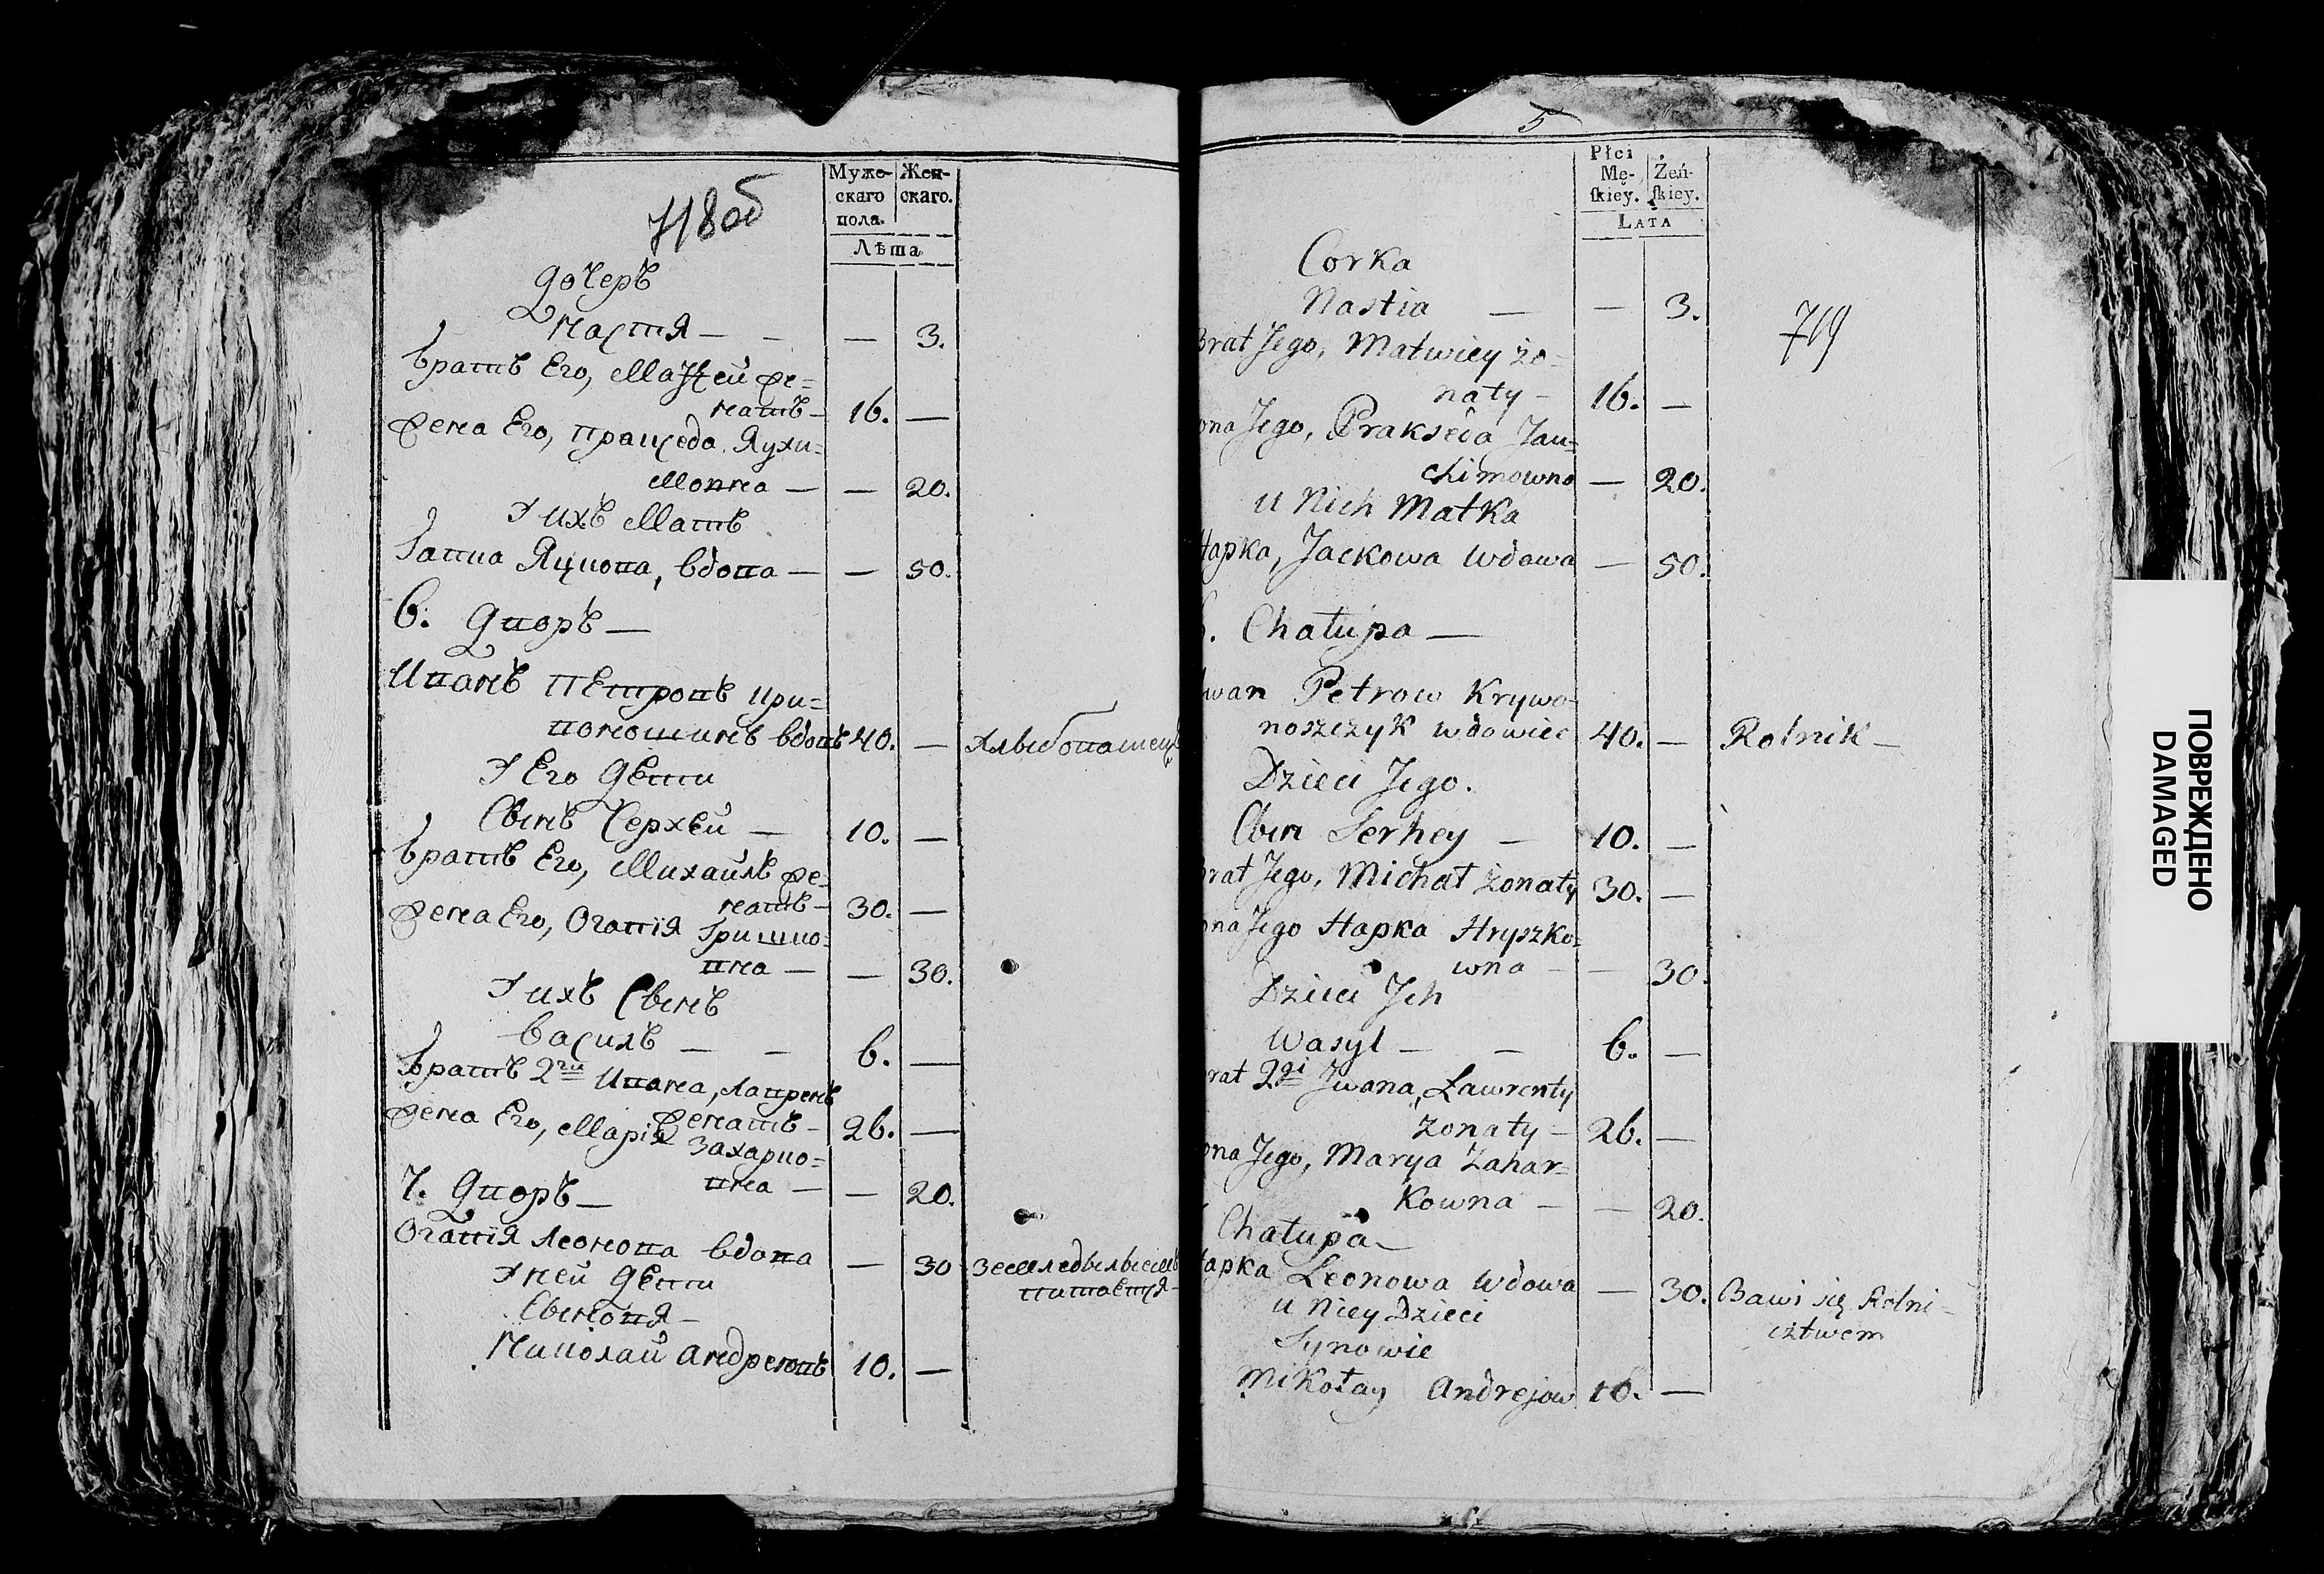 718об
Муже-
скаго
пола.
Жен-
скаго.
Лѣта
дочерь
Настя — — — 3.
братъ Его, Матвей же=
натъ — 16. —
жена Его, Праџеда Яухи=
мовна — — 20.
У ихъ Мать
Гапка Яцкова, вдова — — 50.
6. Дворъ —
Иванъ Петровъ Кри=
воношинъ вдовъ 40. — хлыбопашецъ
У Его Дети
Сынъ Серхѣй — 10. —
братъ Его, Михайлъ же=
натъ — 30. —
жена Его, Огапія Гришко=
вна — — 30.
У ихъ Сынъ
Василь — — 6. —
братъ 2ги Ивана, Лавренъ
женатъ — 26. —
жена Его, Марія Захарко=
вна — — 20.
7. Дворъ —
Огапія Леонова вдова — 30
У ней Дети
Сыновя —
Николай Андреювъ 10. —
5
Płci
Mę-
ſkiey.
Żeń-
ſkiey.
LATA
719
Corka
Nastia — — 3.
Brat Jego, Matwiey żo=
naty — 16. —
ona Jego, Prakseda Jau=
chimowna — 20.
u Nich Matka
Hapka, Jackowa Wdowa — 50.
6. Chałupa —
Iwan Petrow Krywo=
noszczyk wdowiec 40. — Rolnik —
Dzieci Jego.
Сын Serhey — 10. —
brat Jego, Michał żonaty 30. —
ona Jego Hapka Hryszko=
wna — — 30.
Dzieci Jch
Wasyl — — 6. —
rat 2gi Jwana, Ławrenty
żonaty — 26. —
ona Jego, Marya Zahar=
kowna — — 20.
Chałupa —
apka Leonowa Wdowa — 30. Bawi się Rolni=
cztwem
u Niey Dzieci
Synowie
Mikołay Andrejow 10. —
ПОВРЕЖДЕНО
DAMAGED